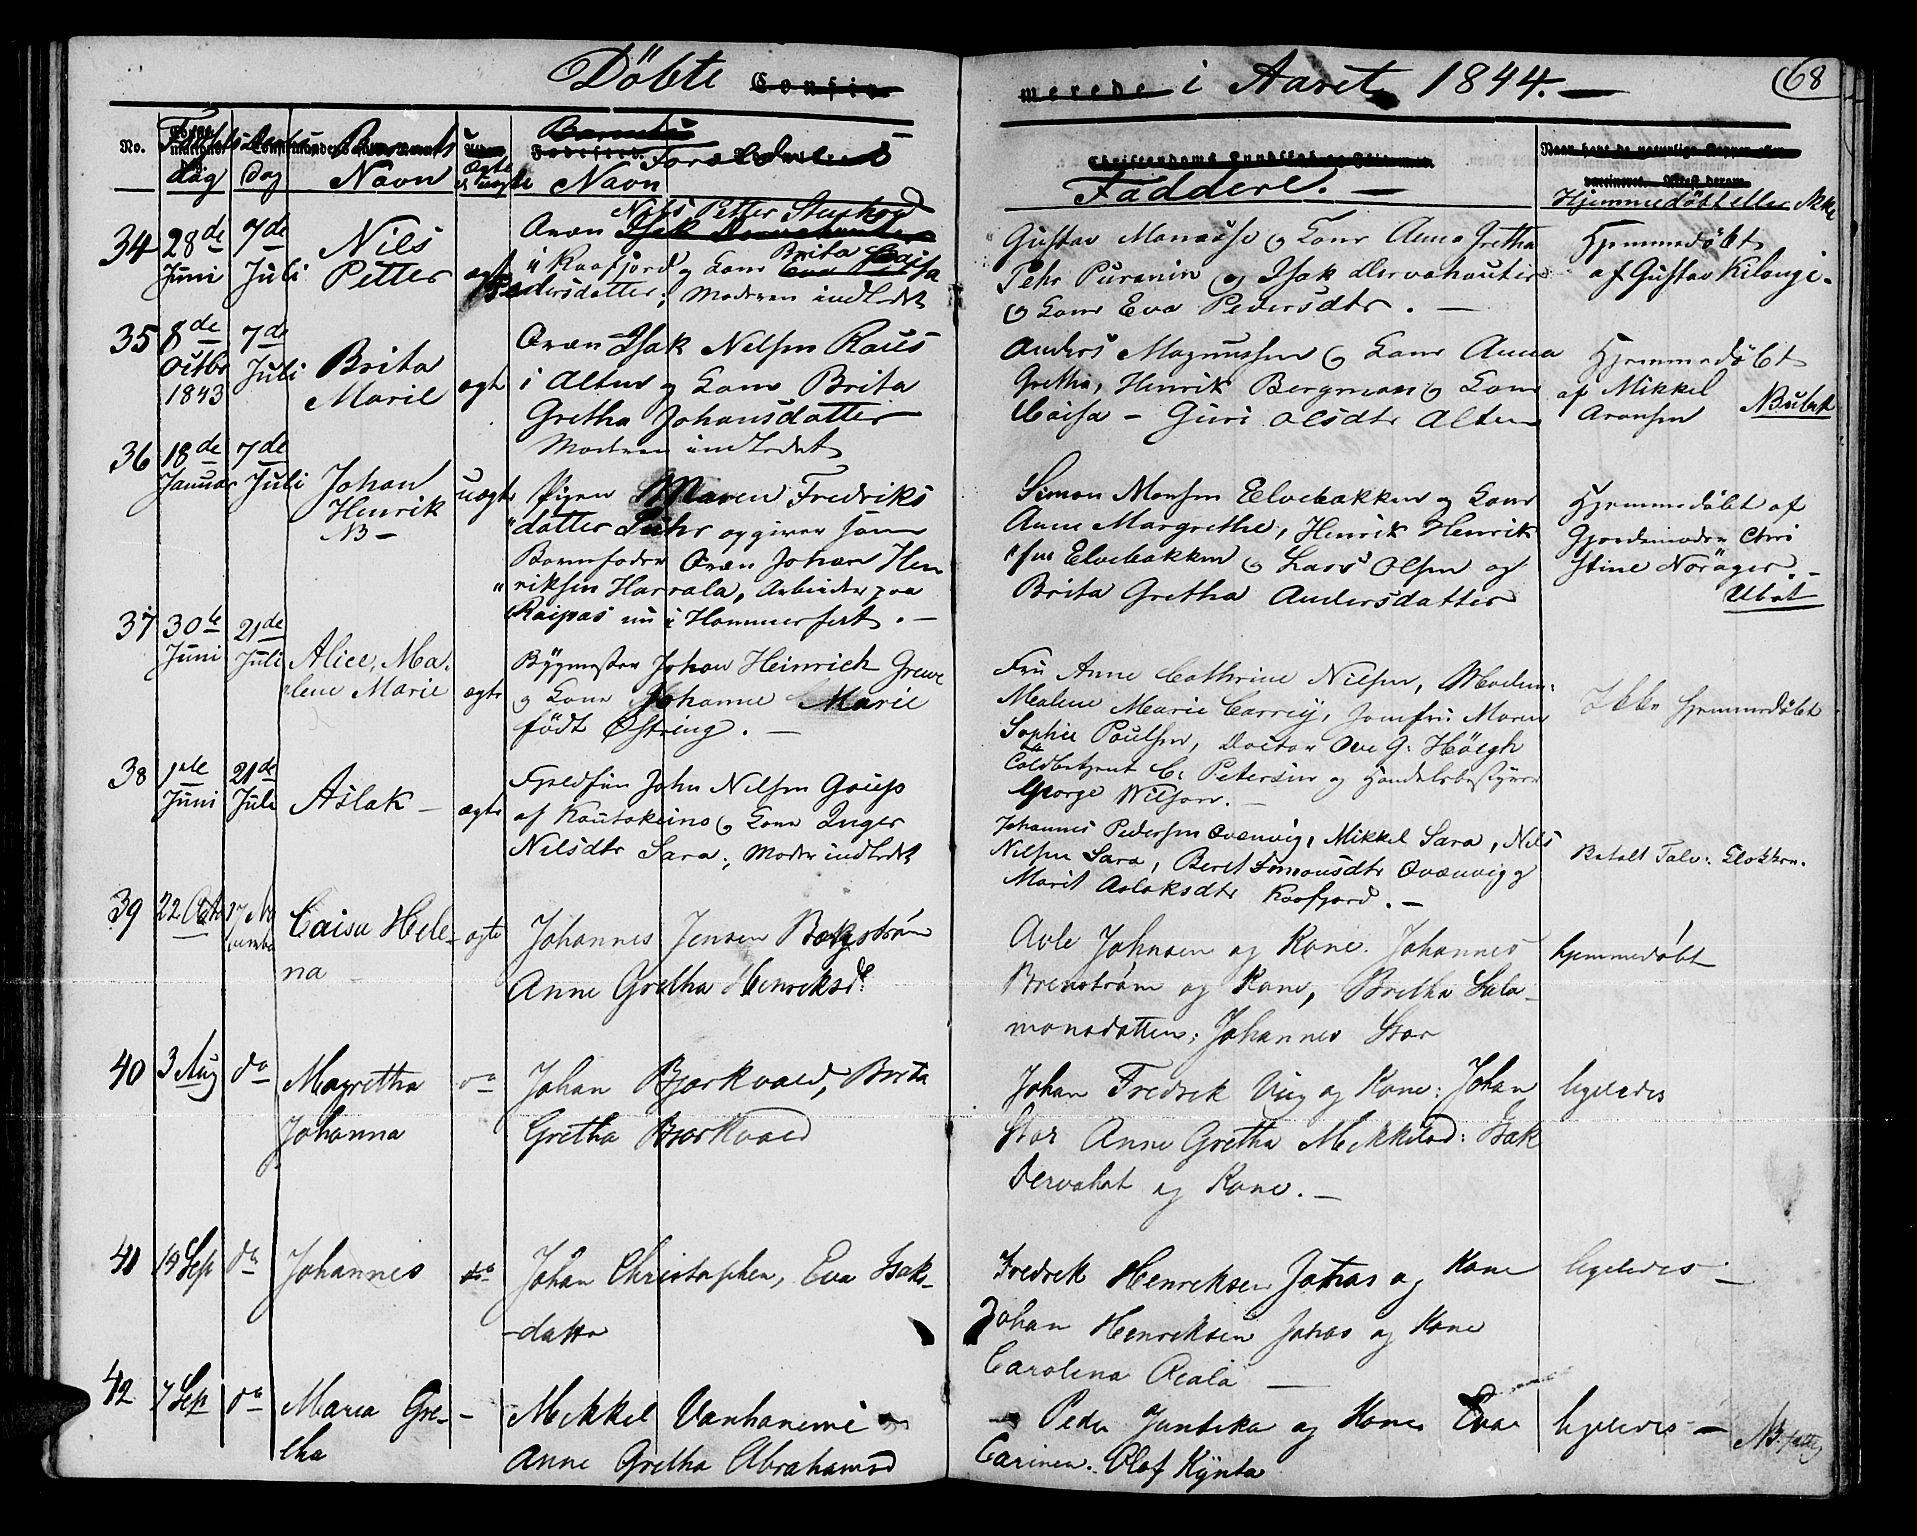 Döbte i Aaret 1844. —
68
No. Födsels Dag Daabs Dag Barnets Navn Ægte el. uægte Forældrenes Navn Faddere. — Hjemmedöbt eller ikke
34 28de Juni 7de Juli Nils Petter ægt
Qvæn Nils Petter
i Kaafjord og Kone Brita Caisa
Pedersdatter; Moderen indledet
Gustav Manasse og Kone Anna Gretha
Pehr Puranin og Isak Dervahauter
og Kone Eva Pedersdtr. —
Hjemmedöbt
af Gustav Kilangi.
35 8de Octbr 1843 7de Juli Brita Marie ægt
Qvæn Isak Nilsen Raus
i Alten og Kone Brita
Gretha Johansdatter
Moderen indledet
Anders Magnussen og Kone Anna
Gretha, Henrik Bergman og Kone
Caisa — Guri Olsdtr Alten
Hjemmedöbt
af Mikkel
Aronsen
36 18de Januar 7de Juli Johan Henrik NB — uægte
Pigen Maren Fredriks
datter opgiver som
Barnefader Qvæn Johan Hen
riksen Harrala, Arbeider paa
Raipas nu i Hammerfest. —
Simon Monsen Elvebakken og Kone
Anne Margrethe, Henrik Henrik
sen Elvebakken og Lars Olsen og
Brita Gretha Andersdatter
Hjemmedöbt af
Gjordemoder Chri
stine Noräger —
37 30te Juni 21de Juli Alice, Ma-
lene Marie ægte
Bÿgmester Johan Heinrich Grewe
og Kone Johanne Marie
födt Østring. —
Fru Anne Cathrine Nilsen, Madm:
Malene Marie Carreij, Jomfru Maren
Sophie Poulsen, Doctor Ove G. Höegh
C. Petersen og Handelsbestyrer
George Nilson. —
Ikke hjemmedöbt
38 1ste Juni 21de Juli Aslak — ægte
Fjeldfin John Nilsen Gaup
af Koutokeino og Kone Inger
Nilsdtr Sara; Moder indledet
Johannes Pedersen Qvænvig, Mikkel Sara, Nils
Nilsen Sara, Beret Simonsdtr Qvænvig og
Marit Aslaksdtr Kaafjord. —
Betalt
39 22 Octb 17 November Caisa Hele-
na — ægte
Johannes Jensen Bekström
Anne Gretha Henriksd:
Avle Johnsen og Kone. Johannes
Brenström og Kone, Bretha Sala-
monsdatter; Johannes Stor
hjemmedöbt
40 3 Aug do Magretha Johanna do
Johan Bjorkvald, Brita
Gretha Bjorkvald
Johan Fredrik Viig og Kone: Johan
Stor Anne Gretha Mikkelsd: Isak
Dervahat og Kone. —
ligeledes
41 19 Sep do Johannes do
Johan Christophen, Eva Isaks-
-datter
Fredrik Henriksen Jonas og Kone
Johan Henriksen Jonas og Kone
Carolena
ligeledes —
42 7 Sep do Maria Gre-
tha —
Mikkel Vanhaniemi og
Anne Gretha Abrahamsd
Peder Juntika og Kone Eva
Carinen. Olof Kÿnta
ligeledes —
NB